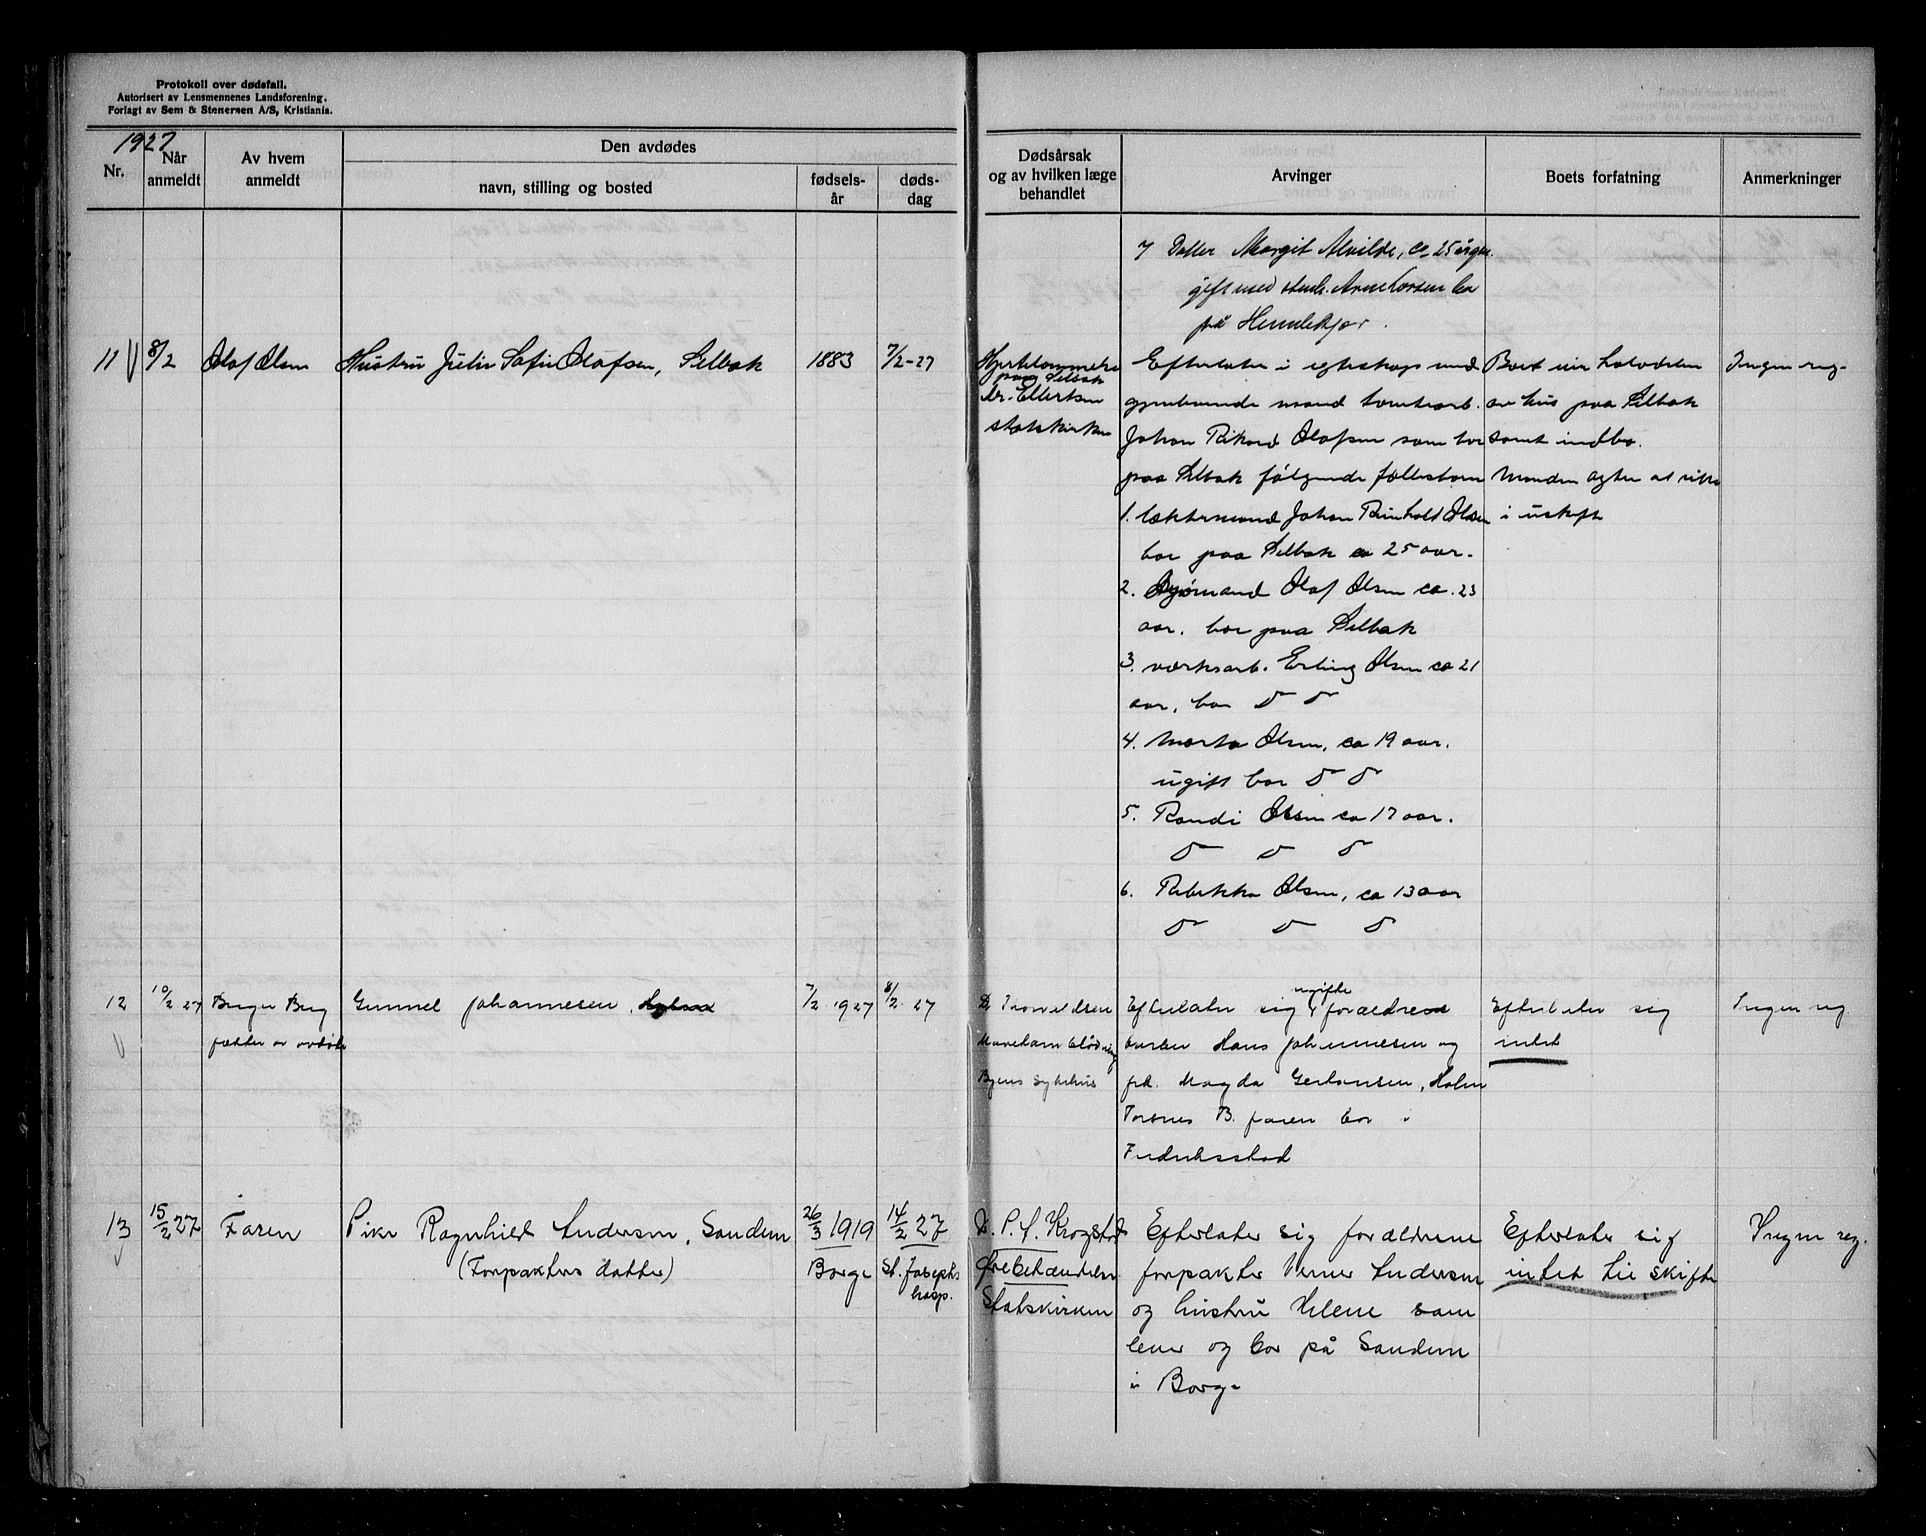 Protokoll over dødsfall.
Autorisert av Lensmennenes Landsforening.
Forlagt av Sem & Stenersen A/S, Kristiania.
1927
Nr.
Når anmeldt
Av hvem anmeldt
Den avdødes
navn, stilling og bosted
fødsels-
år
døds-
dag
Dødsårsak
og av hvilken læge
behandlet
Arvinger
Boets forfatning
Anmerkninger
7 Datter Margit Alvilde, ca 25 årgm.
gift med stenh. Arne Larsen bor
på
11 8/2 Olaf Olsen Hustru Julie Sofie Olafsen, Selbak 1883 7/2-27
paa Selbak
dr. Ellertsen
statskirken
Efterlater i egteskap med
gjenlevende mand tomtearb.
Johan Rikard Olafsen som bor
paa Selbak følgende fællesbarn
1. læktermand Johan Reinholt Olsen
bor paa Selbak ca 25 aar.
2. Sjømand Olaf Olsen ca. 23
aar, bor paa Selbak
3. værksarb. Erling Olsen ca 21
aar, bor do do
4. Marta Olsen, ca 19 aar.
ugift bor do do
5. Randi Olsen ca 17 aar.
do do do
6. Rebekka Olsen, ca 13 aar
do do do
Boet eier halvdelen
av hus paa Selbak
samt indbo.
Manden agter at sitte
i uskifte
Ingen reg.
12 10/2 27 Birger Berg
fætter av avdøde
Gunnel Johannesen,
7/2 1927 8/2 27
Dr Thorvaldsen
Mavetarmblødning
Byens sykehus
Efterlater sig ugifte forældre
Hans Johannesen og
frk. Magda Gerhansen, Holm
Torsnes B. faren bor i
Fredriksstad
Efterlater sig
intet
Ingen reg.
13 15/2 27 Faren Pike Ragnhild Andersen, Sandem
(Forpakters datter)
26/3 1919
Borge
14/2 27
St. Josephs
hosp.
Dr. P. J. Krogstad
Ørebetændelse
Statskirken
Efterlater sig forældrene
forpakter Verner Andersen
og hustru Helene som
lever og bor på Sandem
i Borge
Efterlater sig
intet til skifte
Ingen reg.